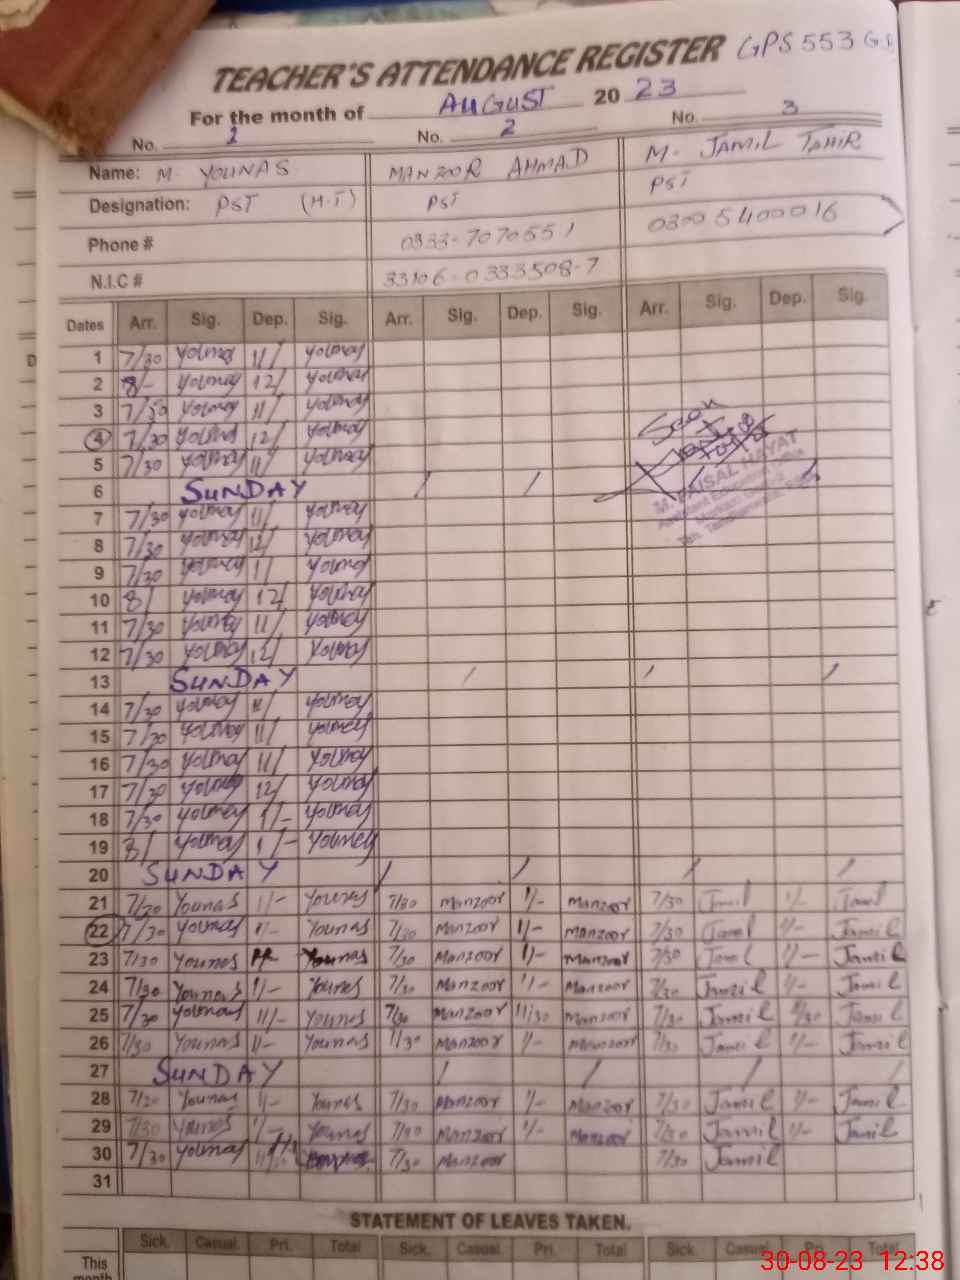 TEACHER'S ATTENDANCE REGISTER GPS 553
For the month of AUGUST 20 23
No. 1 No. 2 No. 3
Name: M. YOUNAS MANZOOR AHMAD M. JAMIL TAHIR
Designation: PST PST PST
Phone # 0333-7070551 0300 5400016
N.I.C # 33106-0333508-7
Dates Arr. Sig. Dep. Sig. Arr. Sig. Dep. Sig. Arr. Sig. Dep. Sig.
1 7/30 Younas 11/ Younas
2 8/- Younas 12/ Younas
3 7/30 Younas 11/ Younas
4 7/30 Younas 12/ Younas
5 7/30 Younas 11/ Younas
6 SUNDAY
7 7/30 Younas 11/ Younas
8 7/30 Younas 12/ Younas
9 7/30 Younas 11/ Younas
10 8/ Younas 12/ Younas
11 7/30 Younas 11/ Younas
12 7/30 Younas 12/ Younas
13 SUNDAY
14 7/30 Younas 11/ Younas
15 7/30 Younas 11/ Younas
16 7/30 Younas 11/ Younas
17 7/30 Younas 12/ Younas
18 7/30 Younas 1/- Younas
19 8/ Younas 1/- Younas
20 SUNDAY
21 7/30 Younas 1/- Younas 7/30 Manzoor 1/- Manzoor 7/30 Jamil 1/- Jamil
22 7/30 Younas 1/- Younas 7/30 Manzoor 1/- Manzoor 7/30 Jamil 1/- Jamil
23 7/30 Younas Younas 7/30 Manzoor 1/- Manzoor 7/30 Jamil 1/- Jamil
24 7/30 Younas 1/- Younas 7/30 Manzoor 1/- Manzoor 7/30 Jamil 1/- Jamil
25 7/30 Younas 11/- Younas 7/30 Manzoor 11/30 Manzoor 7/30 Jamil Jamil
26 7/30 Younas 1/- Younas Manzoor 1/- Manzoor 7/30 Jamil 1/- Jamil
27 SUNDAY
28 7/30 Younas 1/- Younas 7/30 Manzoor 1/- Manzoor 7/30 Jamil 1/- Jamil
29 7/30 Younas Younas 7/30 Manzoor 1/- Manzoor 7/30 Jamil 1/- Jamil
30 7/30 Younas 7/30 Manzoor 7/30 Jamil
31
Seen
M. FAISAL HAYAT
Assistant Education Officer
STATEMENT OF LEAVES TAKEN.
Sick. Casual. Pri. Total Sick. Casual. Pri. Total Sick. Casual. Pri. Total
This
month
30-08-23 12:38